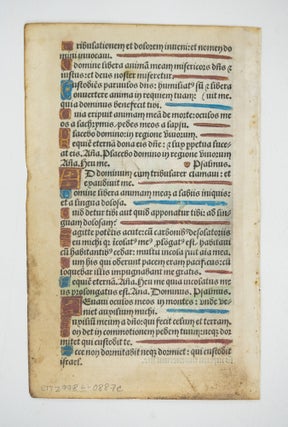 Tribulationem et dolorem inveni: et nomen do
mini invocavi.
O domine libera animā meam misericors dn̄s et
iustus: et deus noster miseretur.
Custodiēs parvulos dn̄s: humiliatꝰ sū et libera
Convertere anima in requiem tuam: vit me.
quia dominus benefecit tibi.
Quia eripuit animam meā de morte: oculos me
os a lachrymis. pedes meos a lapsu.
Placebo domino in regione vivorum
Requiē eternā dona eis dn̄e: et lux ppetua luce
at eis. Añā. Placebo domino in regione vivorum
Añā. Heu me. Psalmus.
AD dominum cum tribularer clamavi: et
exaudivit me.
Domine libera animam meā a labiis iniquis:
et a lingua dolosa.
Quid detur tibi aut quid apponatur tibi: ad lin
guam dolosam:
Sagitte potētis acute: cū carbonibꝰ desolatoriis
cū habitātibꝰ cedar: multū incola fuit anima mea.
Cum his qui oderunt pacem eram pacificꝰ: cū
loquebar illis impugnabāt me gratis.
Requiē eternā. Añā. Heu me quia incolatus me
us prolongatus est. Añā. Dominus. Psalmus.
LEvavi oculos meos in montes: unde ve
niet auxilium michi.
Auxiliū meum a dn̄o: qui fecit celum et terram.
Non det in commotionem pedem tuum: neqꝫ dor
mitet qui custodit te.
Ecce non dormitabit neqꝫ dormiet: qui custodit
israel.